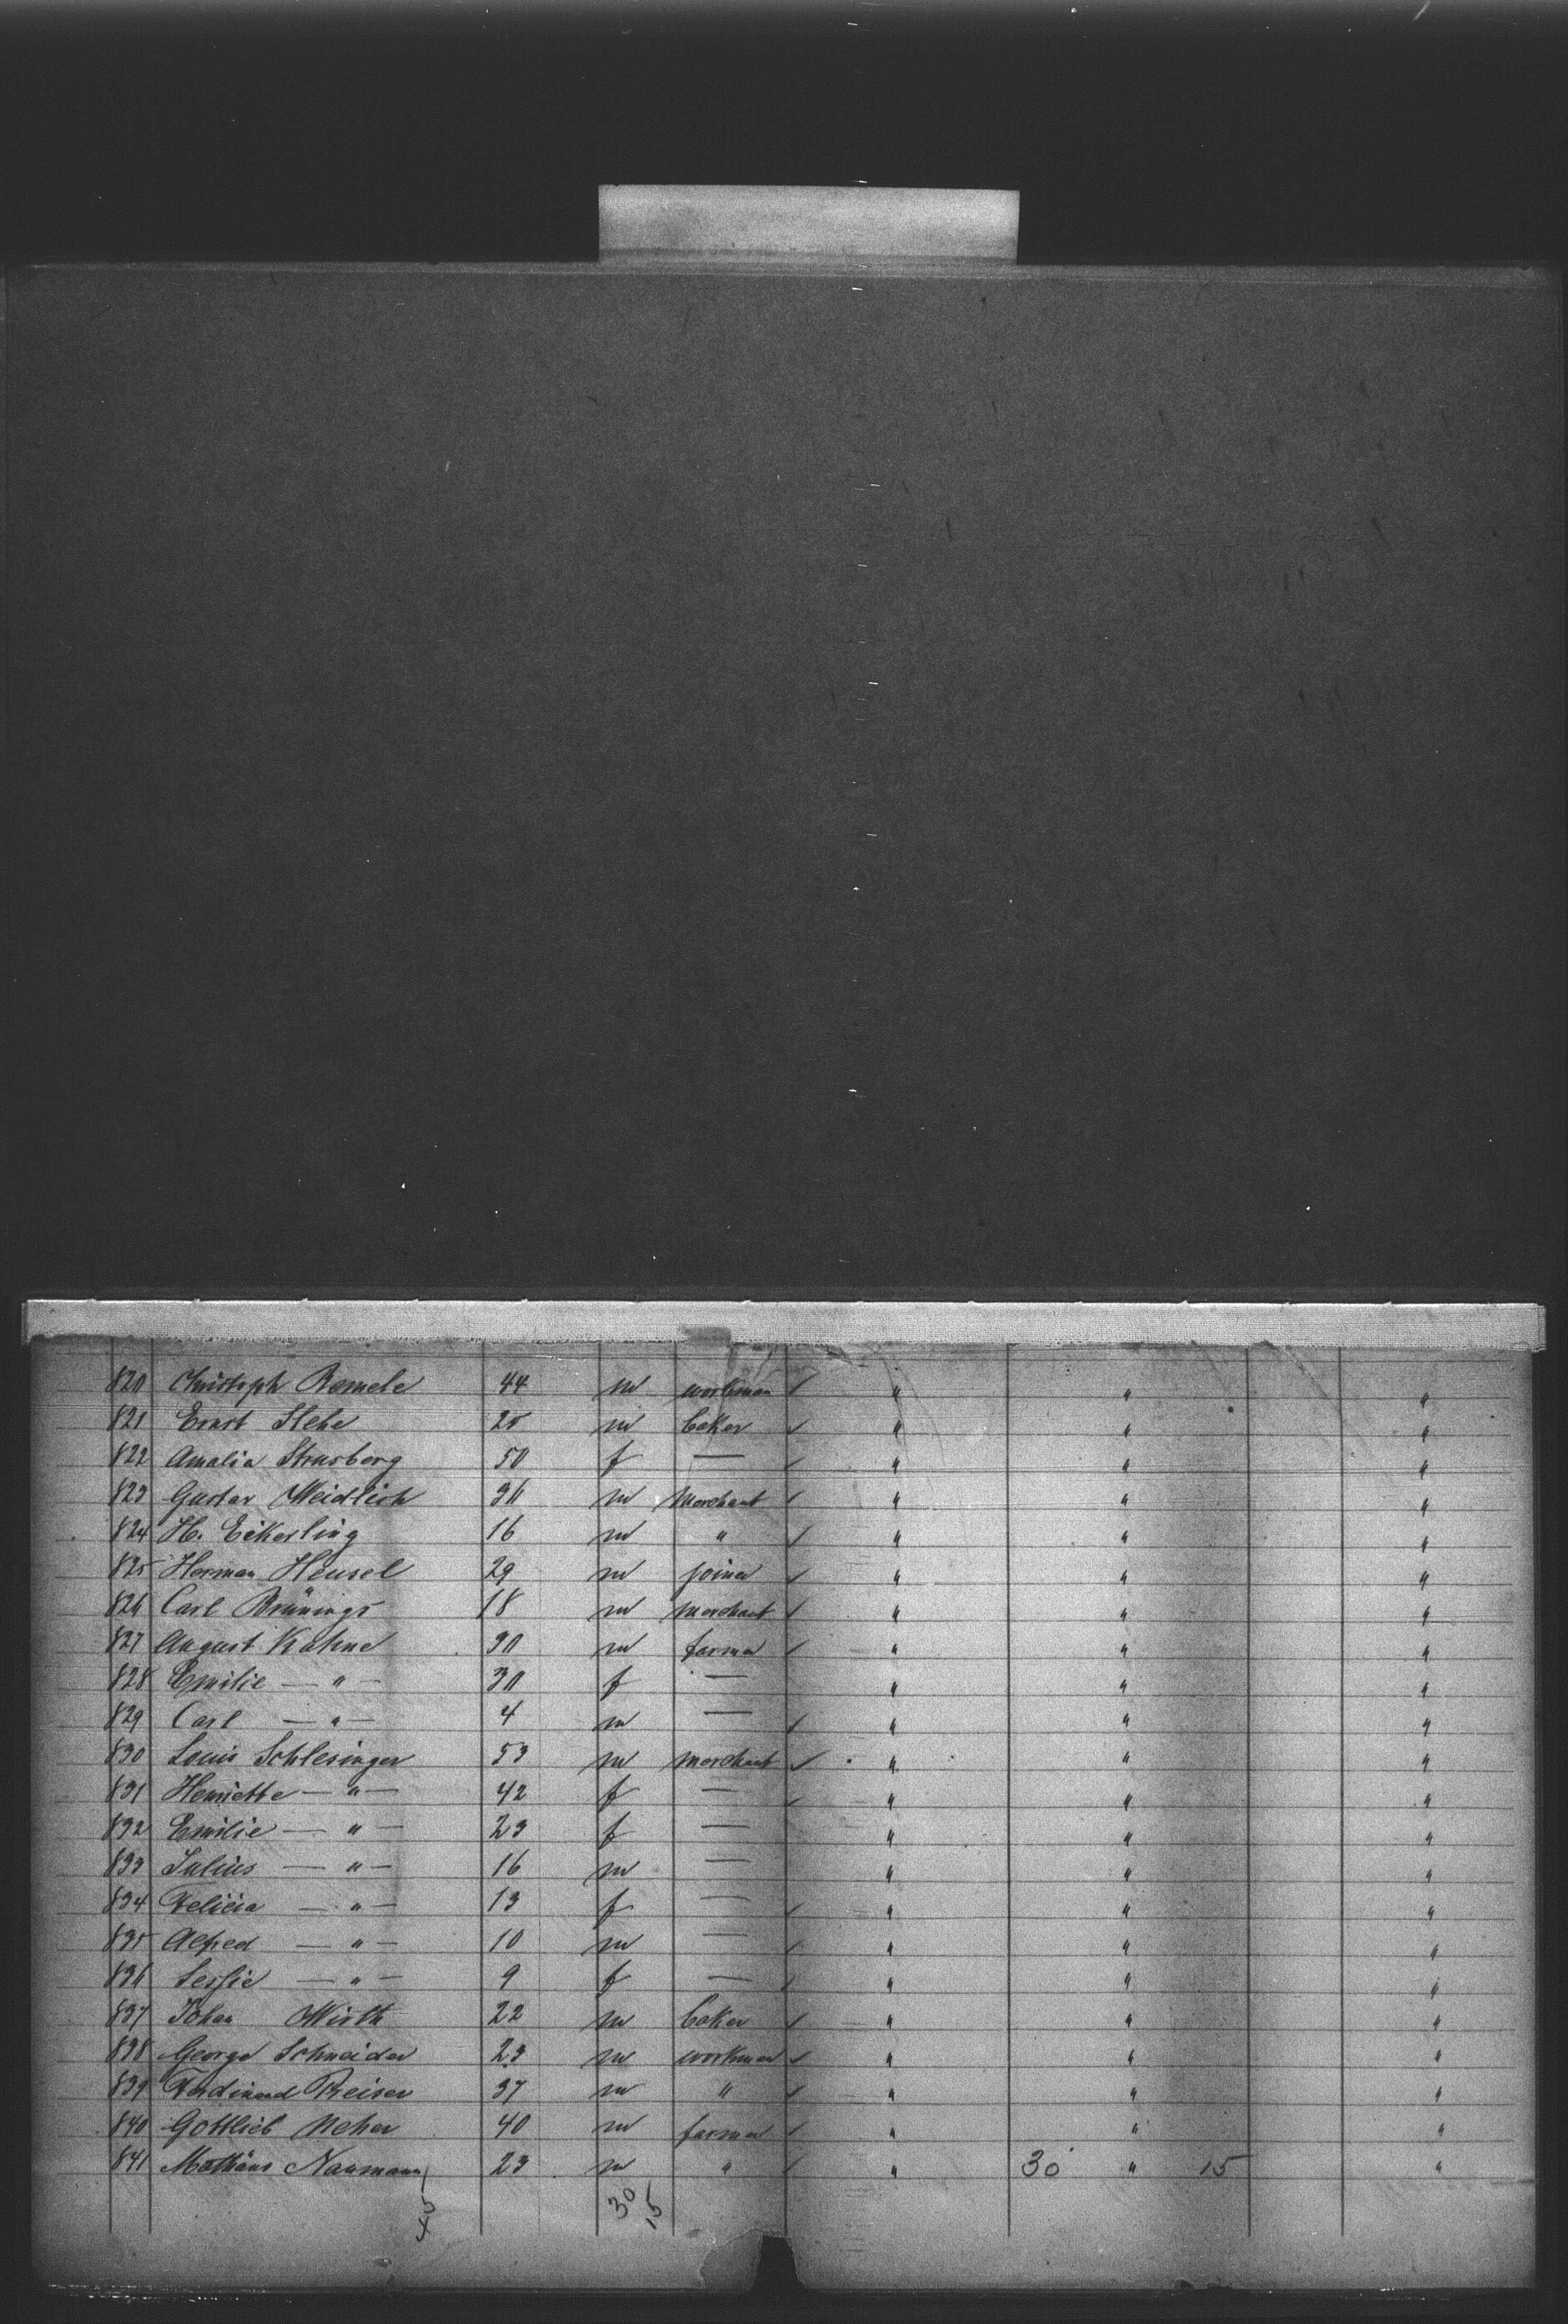 820 Christoph Remele 44 m workman ✓ " " "
821 Ernst Stehe 25 m baker ✓ " " "
822 Amalia Strusberg 50 f — ✓ " " "
823 Gustav Weidlich 30 m merchant ✓ " " "
824 H. Eikerling 16 m " ✓ " " "
825 Herman Hensel 29 m joiner ✓ " " "
826 Carl Brünings 18 m merchant ✓ " " "
827 August Kuhne 30 m farmer ✓ " " "
828 Emilie — " — 30 f — " " "
829 Carl — " — 4 m — ✓ " " "
830 Louis Schlesinger 53 m merchant ✓ " " "
831 Henriette — " — 42 f — ✓ " " "
832 Emilie — " — 23 f — " " "
833 Julius — " — 16 m — " " "
834 Felicia — " — 13 f — ✓ " " "
835 Alfred — " — 10 m — ✓ " " "
836 — " — 9 f — ✓ " " "
837 Johan Wirth 22 m baker ✓ " " "
838 George Schneider 23 m workman ✓ " " "
839 Ferdinand Reiser 37 m " ✓ " " "
840 Gottlieb Neher 40 m farmer ✓ " " "
841 Mathäus Naumann 23 m " ✓ " 30 " 15 "
45 30 15